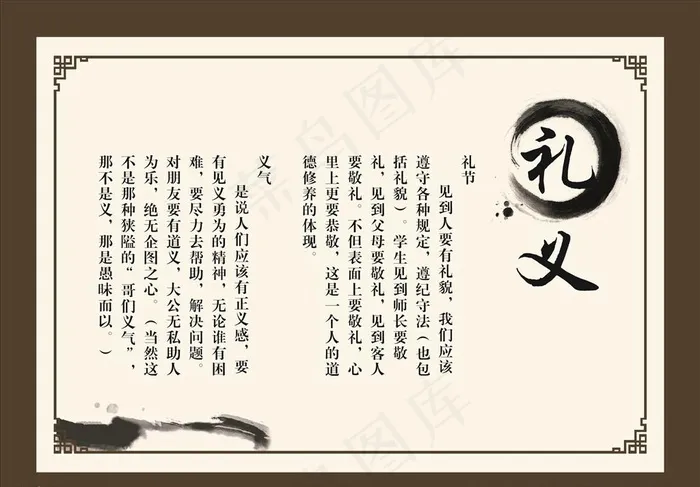 礼义
礼节
见到人要有礼貌，我们应该
遵守各种规定，遵纪守法（也包
括礼貌）。学生见到师长要敬
礼，见到父母要敬礼，见到客人
要敬礼。不但表面上要敬礼，心
里上更要恭敬，这是一个人的道
德修养的体现。
义气
是说人们应该有正义感，要
有见义勇为的精神，无论谁有困
难，要尽力去帮助，解决问题。
对朋友要有道义，大公无私助人
为乐，绝无企图之心。（当然这
不是那种狭隘的“哥们义气”，
那不是义，那是愚昧而以。）
菜鸟图库
菜鸟图库
菜鸟图库